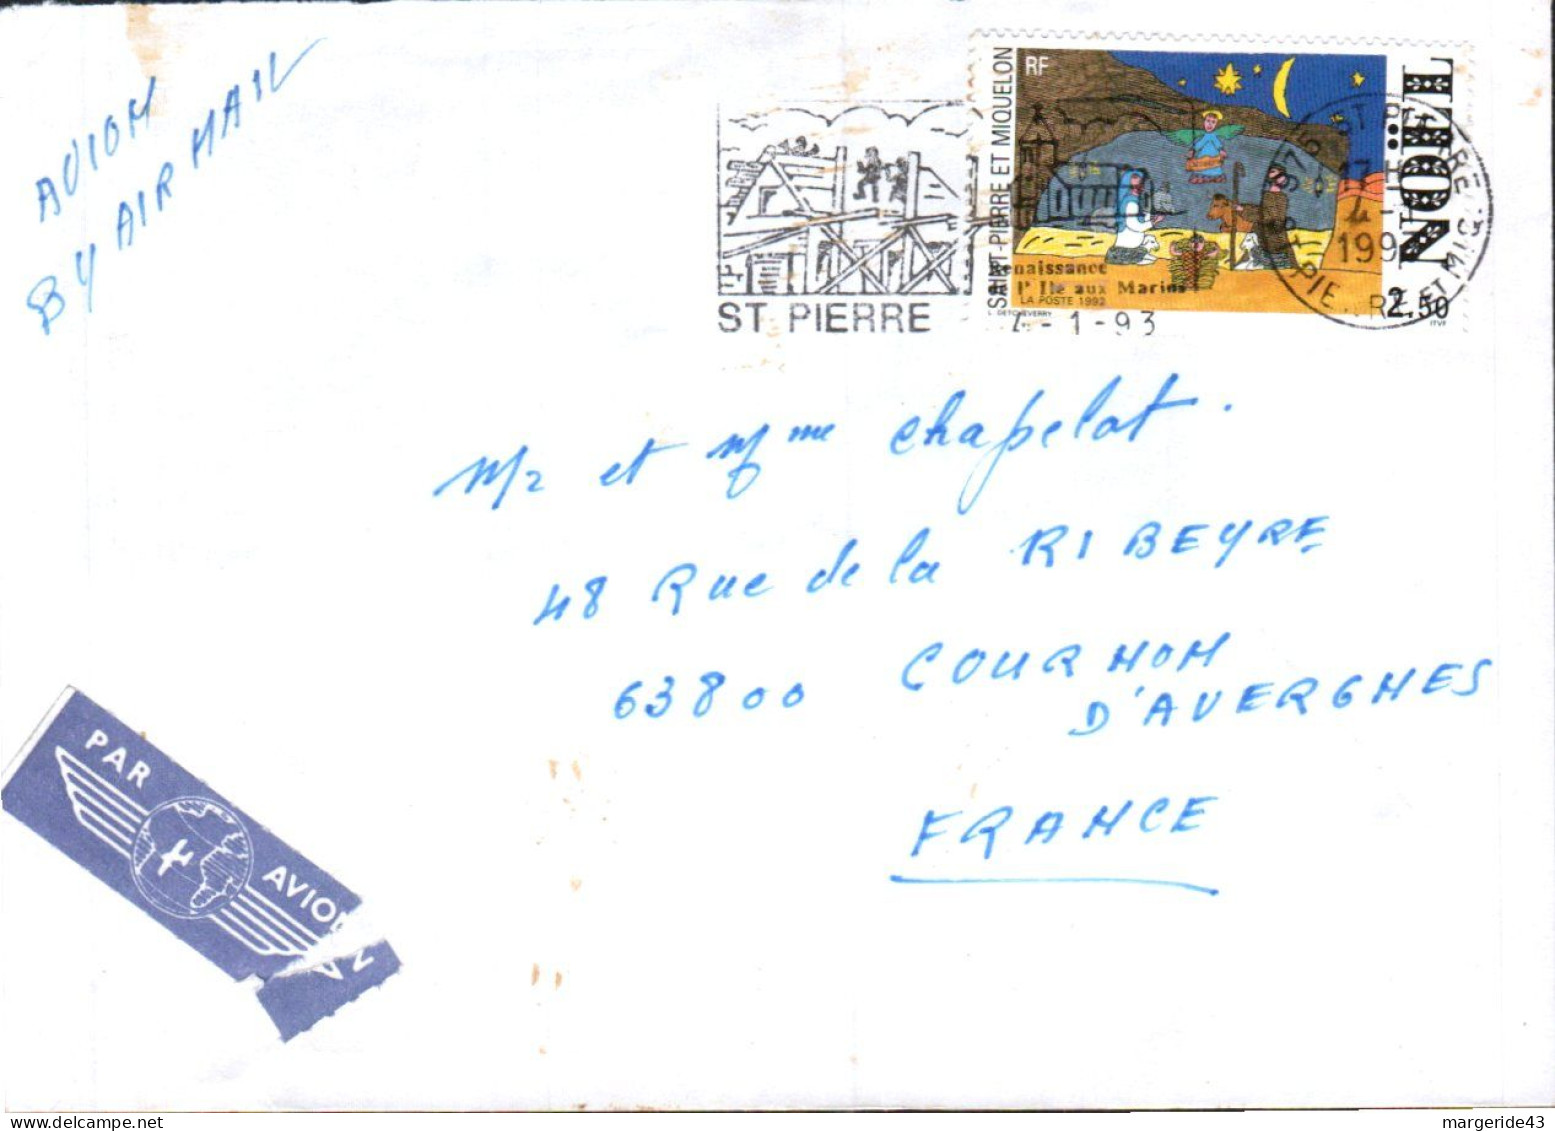 AVION
BY AIR MAIL
SAINT-PIERRE ET MIQUELON
RF
NOËL
2,50
LA POSTE 1992
L. DETCHEVERRY
ITVF
Renaissance
de l'Ile aux Marins
ST PIERRE
4-1-93
975 ST PIERRE
17 H
4-1
199
ST PIERRE ET MIQ
Mr et Mme Chapelat.
48 Rue de la RIBEYRE
63800 COURNON
D'AUVERGNES
FRANCE
PAR
AVION
margeride43